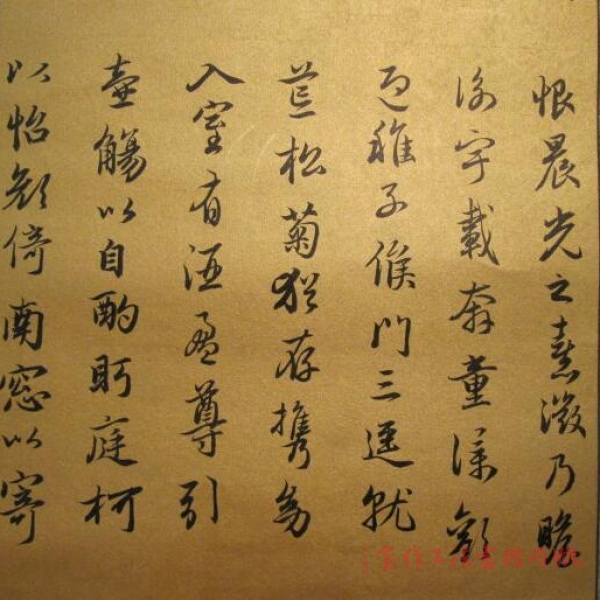 恨晨光之熹微乃瞻
衡宇載奔童僕歡
迎稚子候門三逕就
荒松菊猶存攜幼
入室有酒盈尊引
壺觴以自酌眄庭柯
以怡顏倚南窓以寄